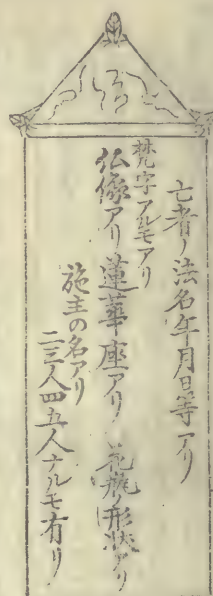 亡者ノ法名年月日等アリ
梵字アルモアリ
仏像アリ蓮華座アリ花瓶ノ形状アリ
施主の名アリ
二三人四五人ナルモ有リ